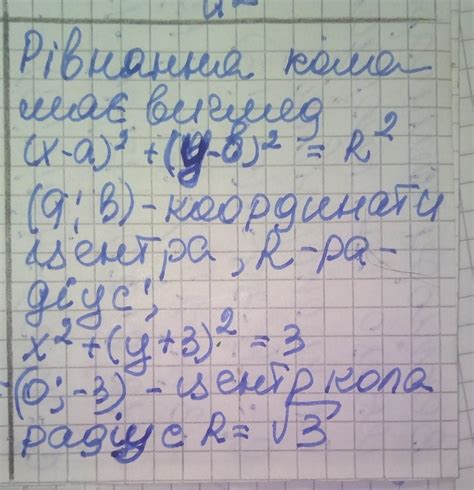 Рівнання кола –
має вигляд
(x-a)² + (y-в)² = R²
(a; в) - координати
центра, R - ра-
діус;
x² + (y+3)² = 3
(0; -3) - центр кола
радіус R = √3